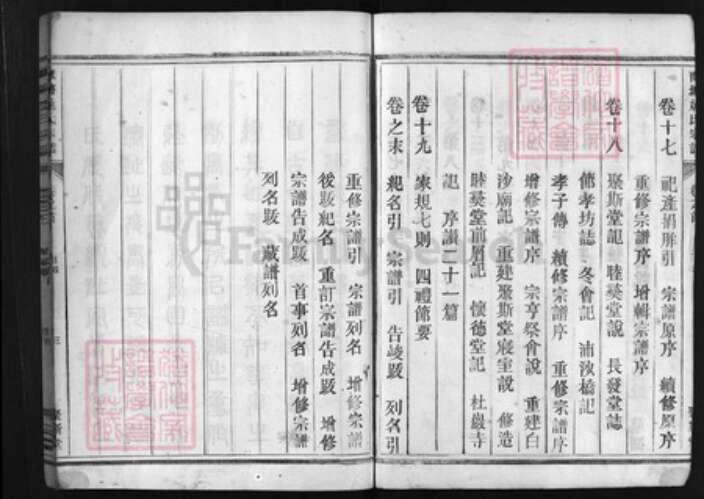 卷十七 祀產捐胙引 宗譜原序 續修原序
重修宗譜序 增輯宗譜序
卷十八 聚斯堂記 睦葵堂說 長發堂誌
節孝坊誌 冬會記 浦汝橋記
孝子傳 續修宗譜序 重修宗譜序
增修宗譜序 宗亨祭會說 重建白
沙廟記 重建聚斯堂寢室說 修造
睦葵堂前眉記 懷德堂記 杜巖寺
記 序讚二十一篇
卷十九 家規七則 四禮節要
卷之末 紀名引 宗譜引 告竣跋 列名引
重修宗譜引 宗譜列名 增修宗譜
後跋紀名 重訂宗譜告成跋 增修
宗譜告成跋 首事列名 增修宗譜
列名跋 藏譜列名
三
聚斯堂
FamilySearch